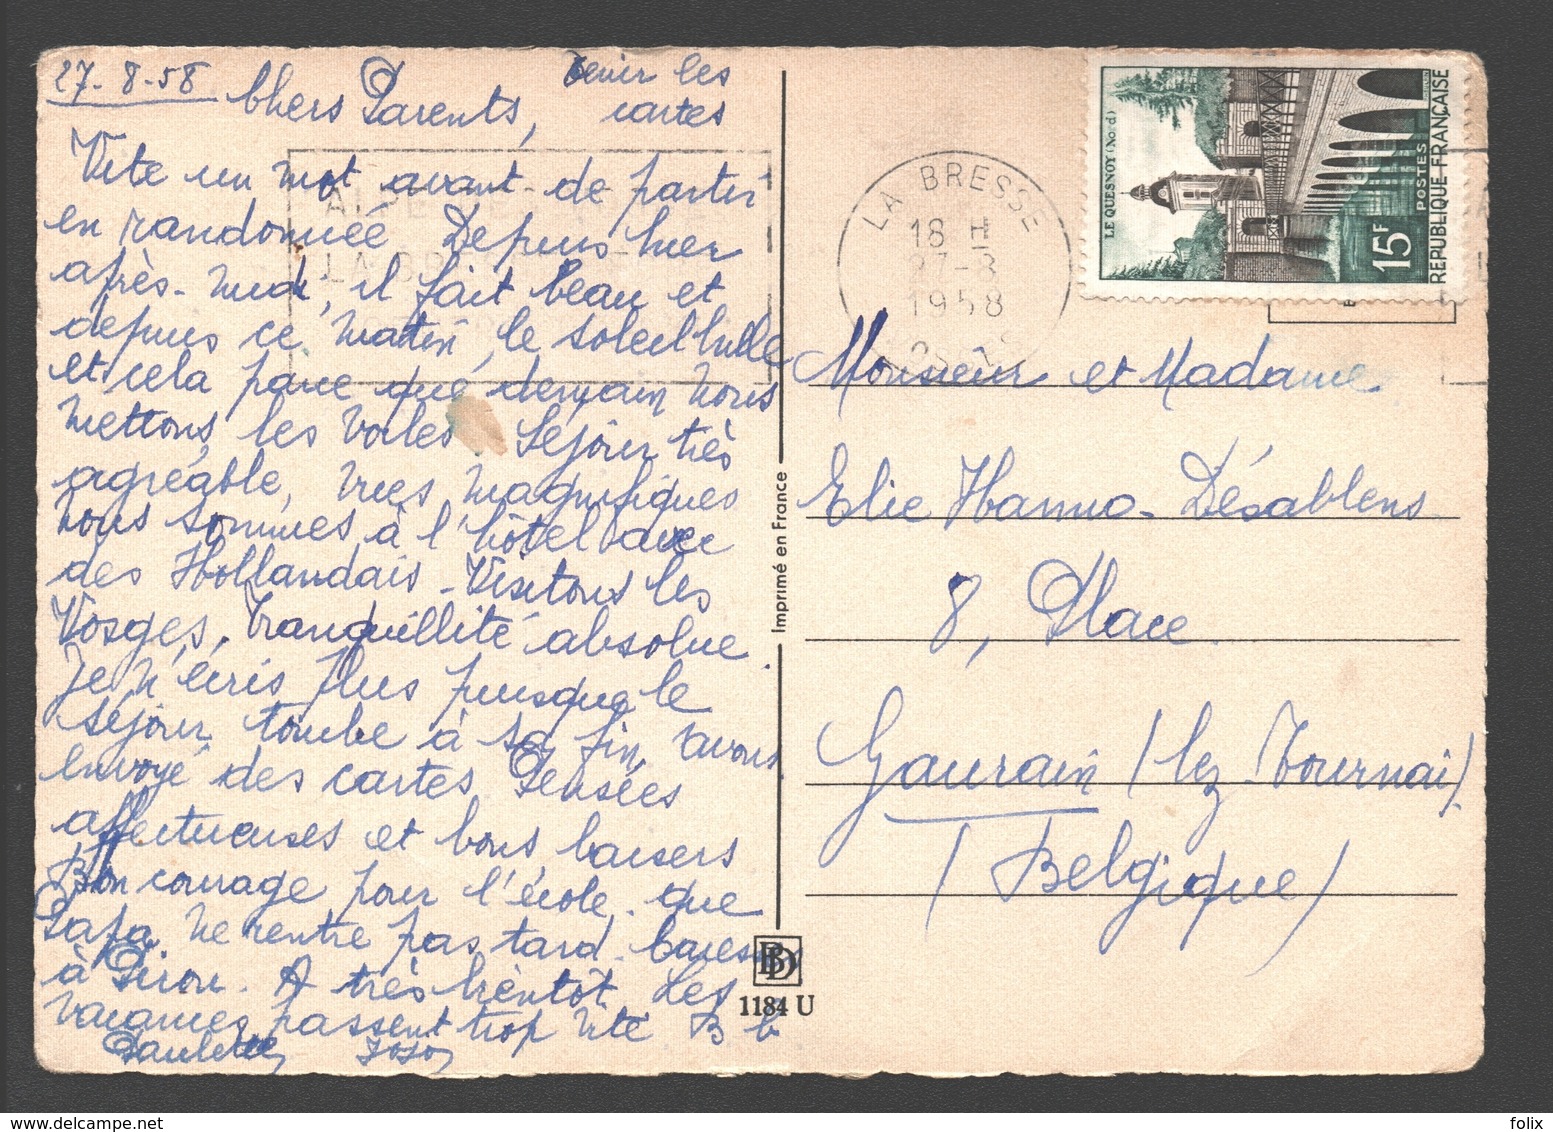 27-8-58
Tenir les
cartes
Chers Parents,
Vite un mot avant de partir
en randonnée. Depuis hier
après-midi, il fait beau et
depuis ce matin, le soleil brille
et cela parce que demain nous
mettons les voiles. Séjour très
agréable, vues magnifiques
nous sommes à l'hôtel avec
des Hollandais - Visitons les
Vosges. Tranquillité absolue.
Je n'écris plus puisque le
séjour tombe à sa fin, avons
envoyé des cartes. Pensées
affectueuses et bons baisers
Bon courage pour l'école. que
Papa ne rentre pas tard. baisers
à Pirou. A très bientôt. Les
vacances passent trop vite B b
Paulette Jojo
LA BRESSE
18 H
27-8
1958
VOSGES
LE QUESNOY (Nord)
15F
POSTES
REPUBLIQUE FRANÇAISE
Monsieur et Madame
Elie Hanno-Désablens
8, Place
Gaurain (lez-Tournai)
(Belgique)
Imprimé en France
BD
1184 U
folix